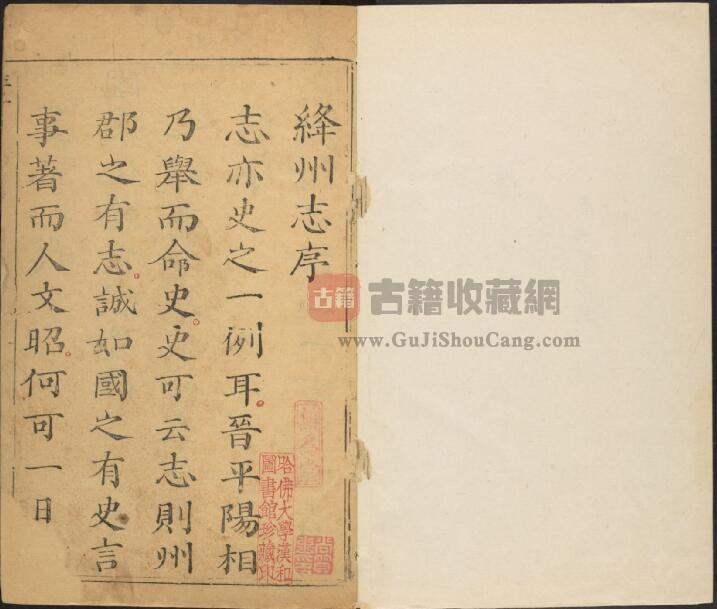 絳州志序
志亦史之一例耳晉平陽相
乃舉而命史史可云志則州
郡之有志誠如國之有史言
事著而人文昭何可一日
哈佛大學漢和
圖書館珍藏印
古籍
古籍收藏網
www.GuJiShouCang.com